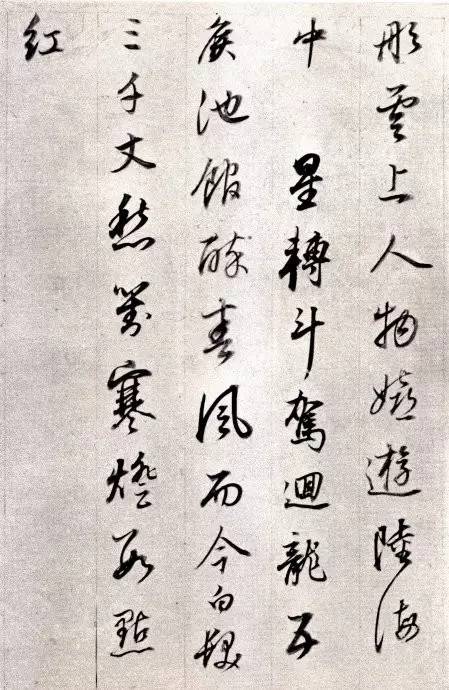 彤雲上人物嬉遊陸海
中 星轉斗駕迴龍五
矦池館醉春風而今白髮
三千丈愁對寒燈數點
紅